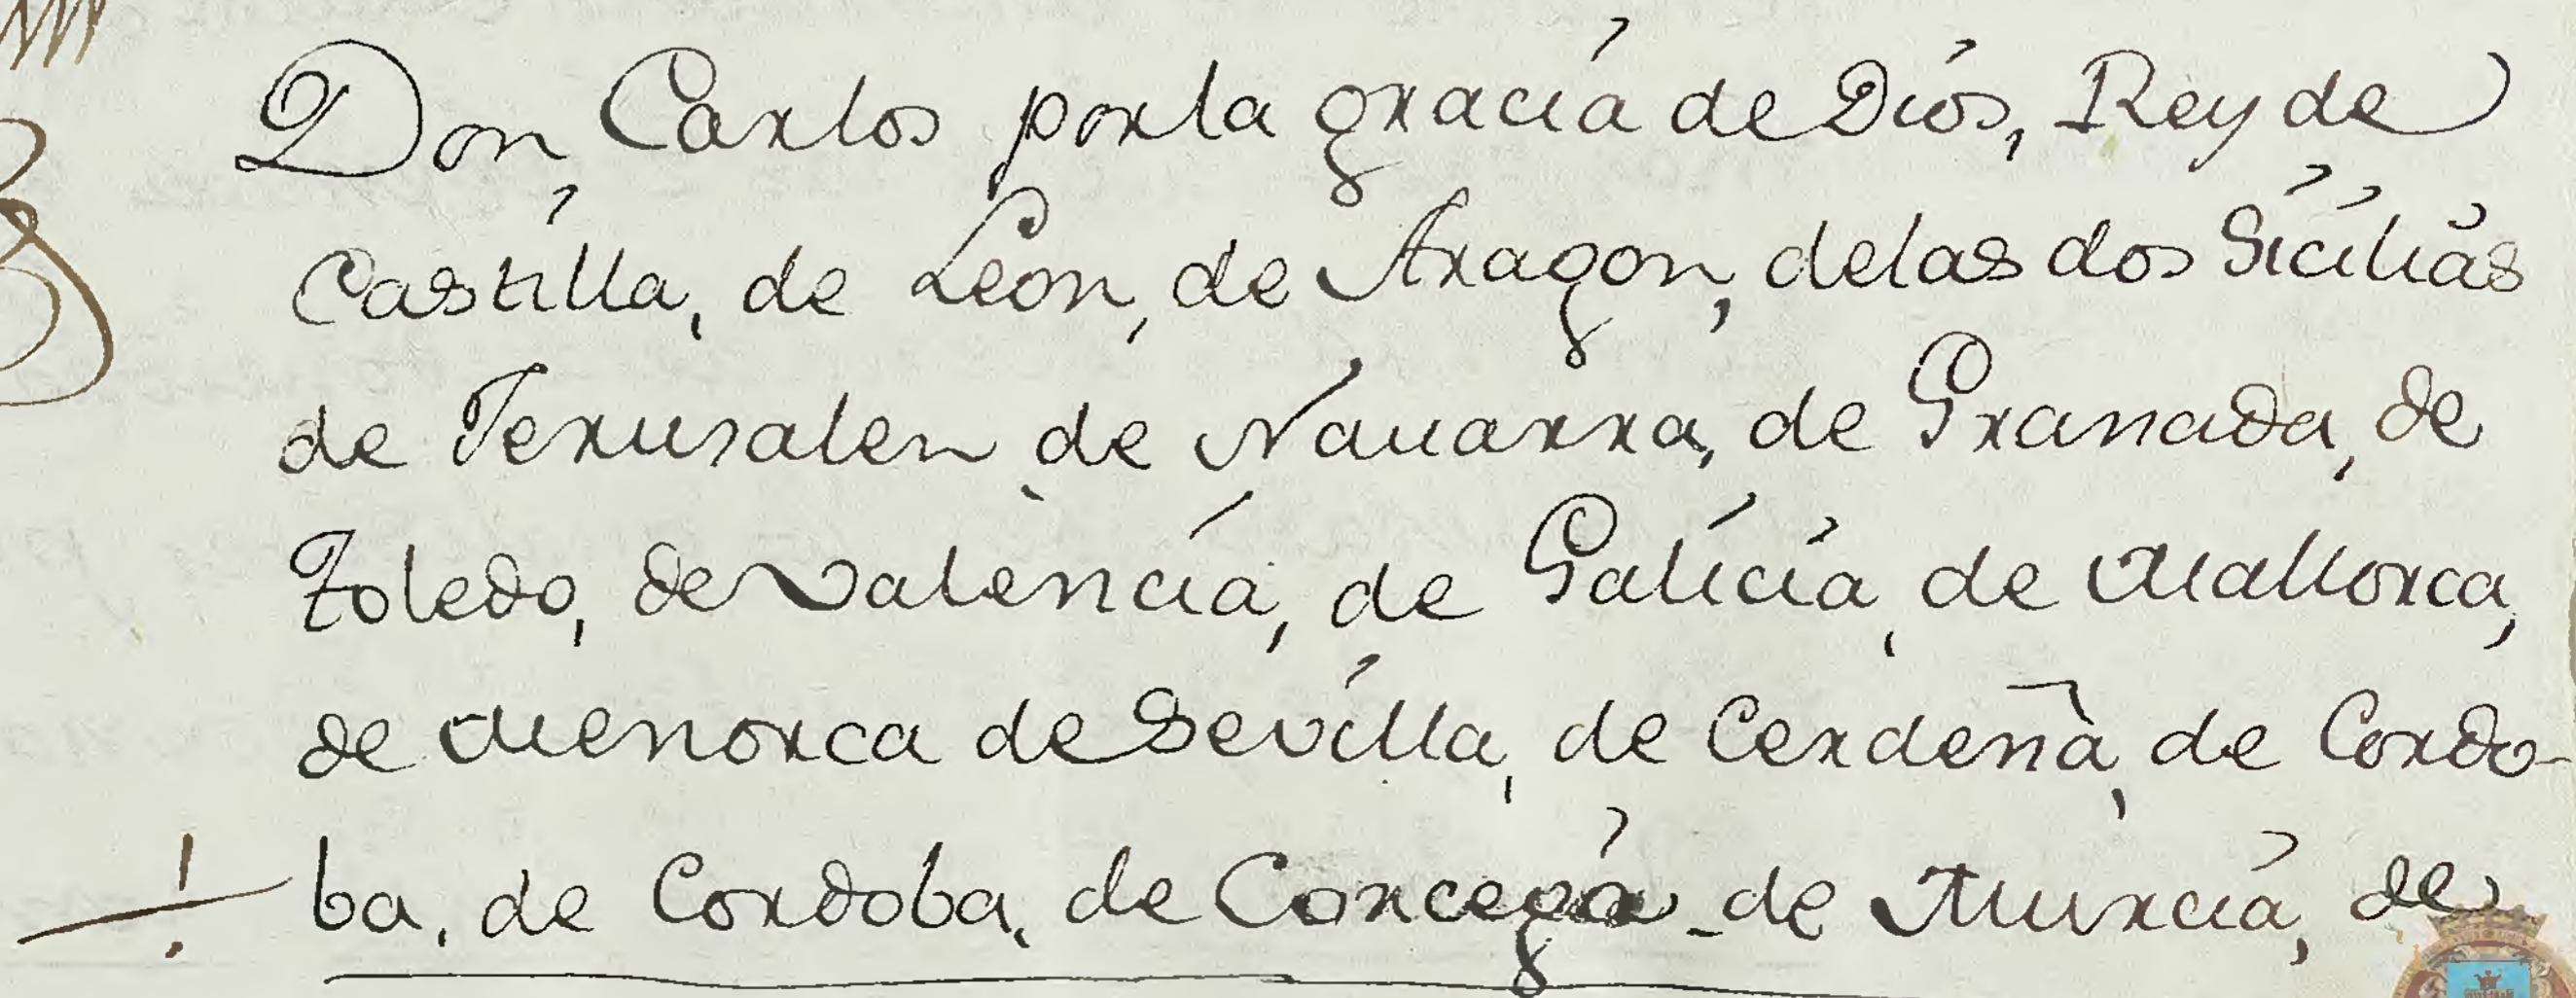 Don Carlos por la gracia de Dios, Rey de
Castilla, de Leon, de Aragon, de las dos Sicilias
de Jerusalen de Nauarra, de Granada, de
Toledo, de Valencia, de Galicia, de Mallorca,
de Menorca de Sevilla, de Cerdeña, de Cordo-
ba, de Cordoba, de Corcega de Murcia, de